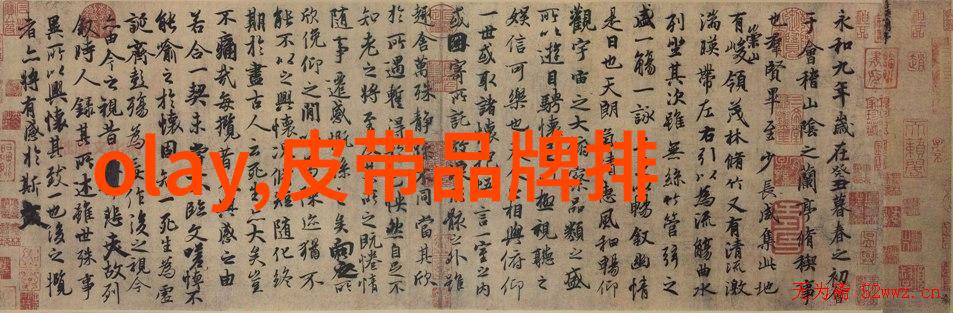 永和九年歲在癸丑暮春之初會
于會稽山陰之蘭亭脩稧事
也群賢畢至少長咸集此地
有崇山峻領茂林脩竹又有清流激
湍暎帶左右引以為流觴曲水
列坐其次雖無絲竹管弦之
盛一觴一詠暢敘幽情
是日也天朗氣清惠風和暢仰
觀宇宙之大察品類之盛
所以遊目騁懷極視聽之
娛信可樂也人相與俯仰
一世或取諸懷言一室之內
或因寄所託骸之外雖
趣舍萬殊靜不同當其欣
於所遇暫得怏然自足不
知老之將至之既惓情
隨事遷感矣向之所
欣俛仰之間迹猶不
能不以之興懷脩短隨化終
期於盡古人云死生大矣豈
不痛哉每攬昔感之由
若合一契未臨文嗟悼不
能喻之於懷固一死生為虛
誕齊彭殤為作後之視今
由今之視昔悲夫故列
敘時人錄其所述雖世殊事
異所以興懷其致一也後之攬
者亦將有感於斯文
olay,皮带品牌排
天为斋 52wwz.cn